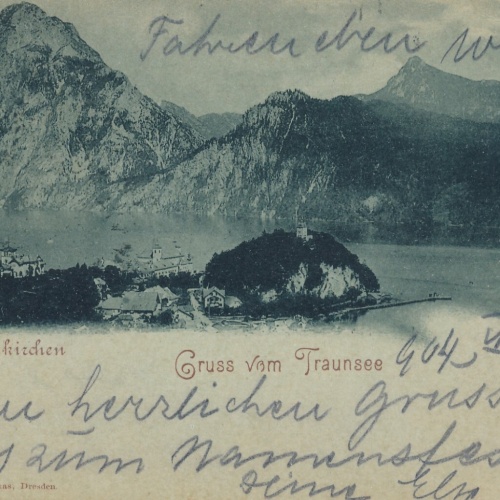 Fahren eben
kirchen
Gruss vom Traunsee 904 VII
herrlichen Gruss
zum Namensfes
Deine
Dresden.